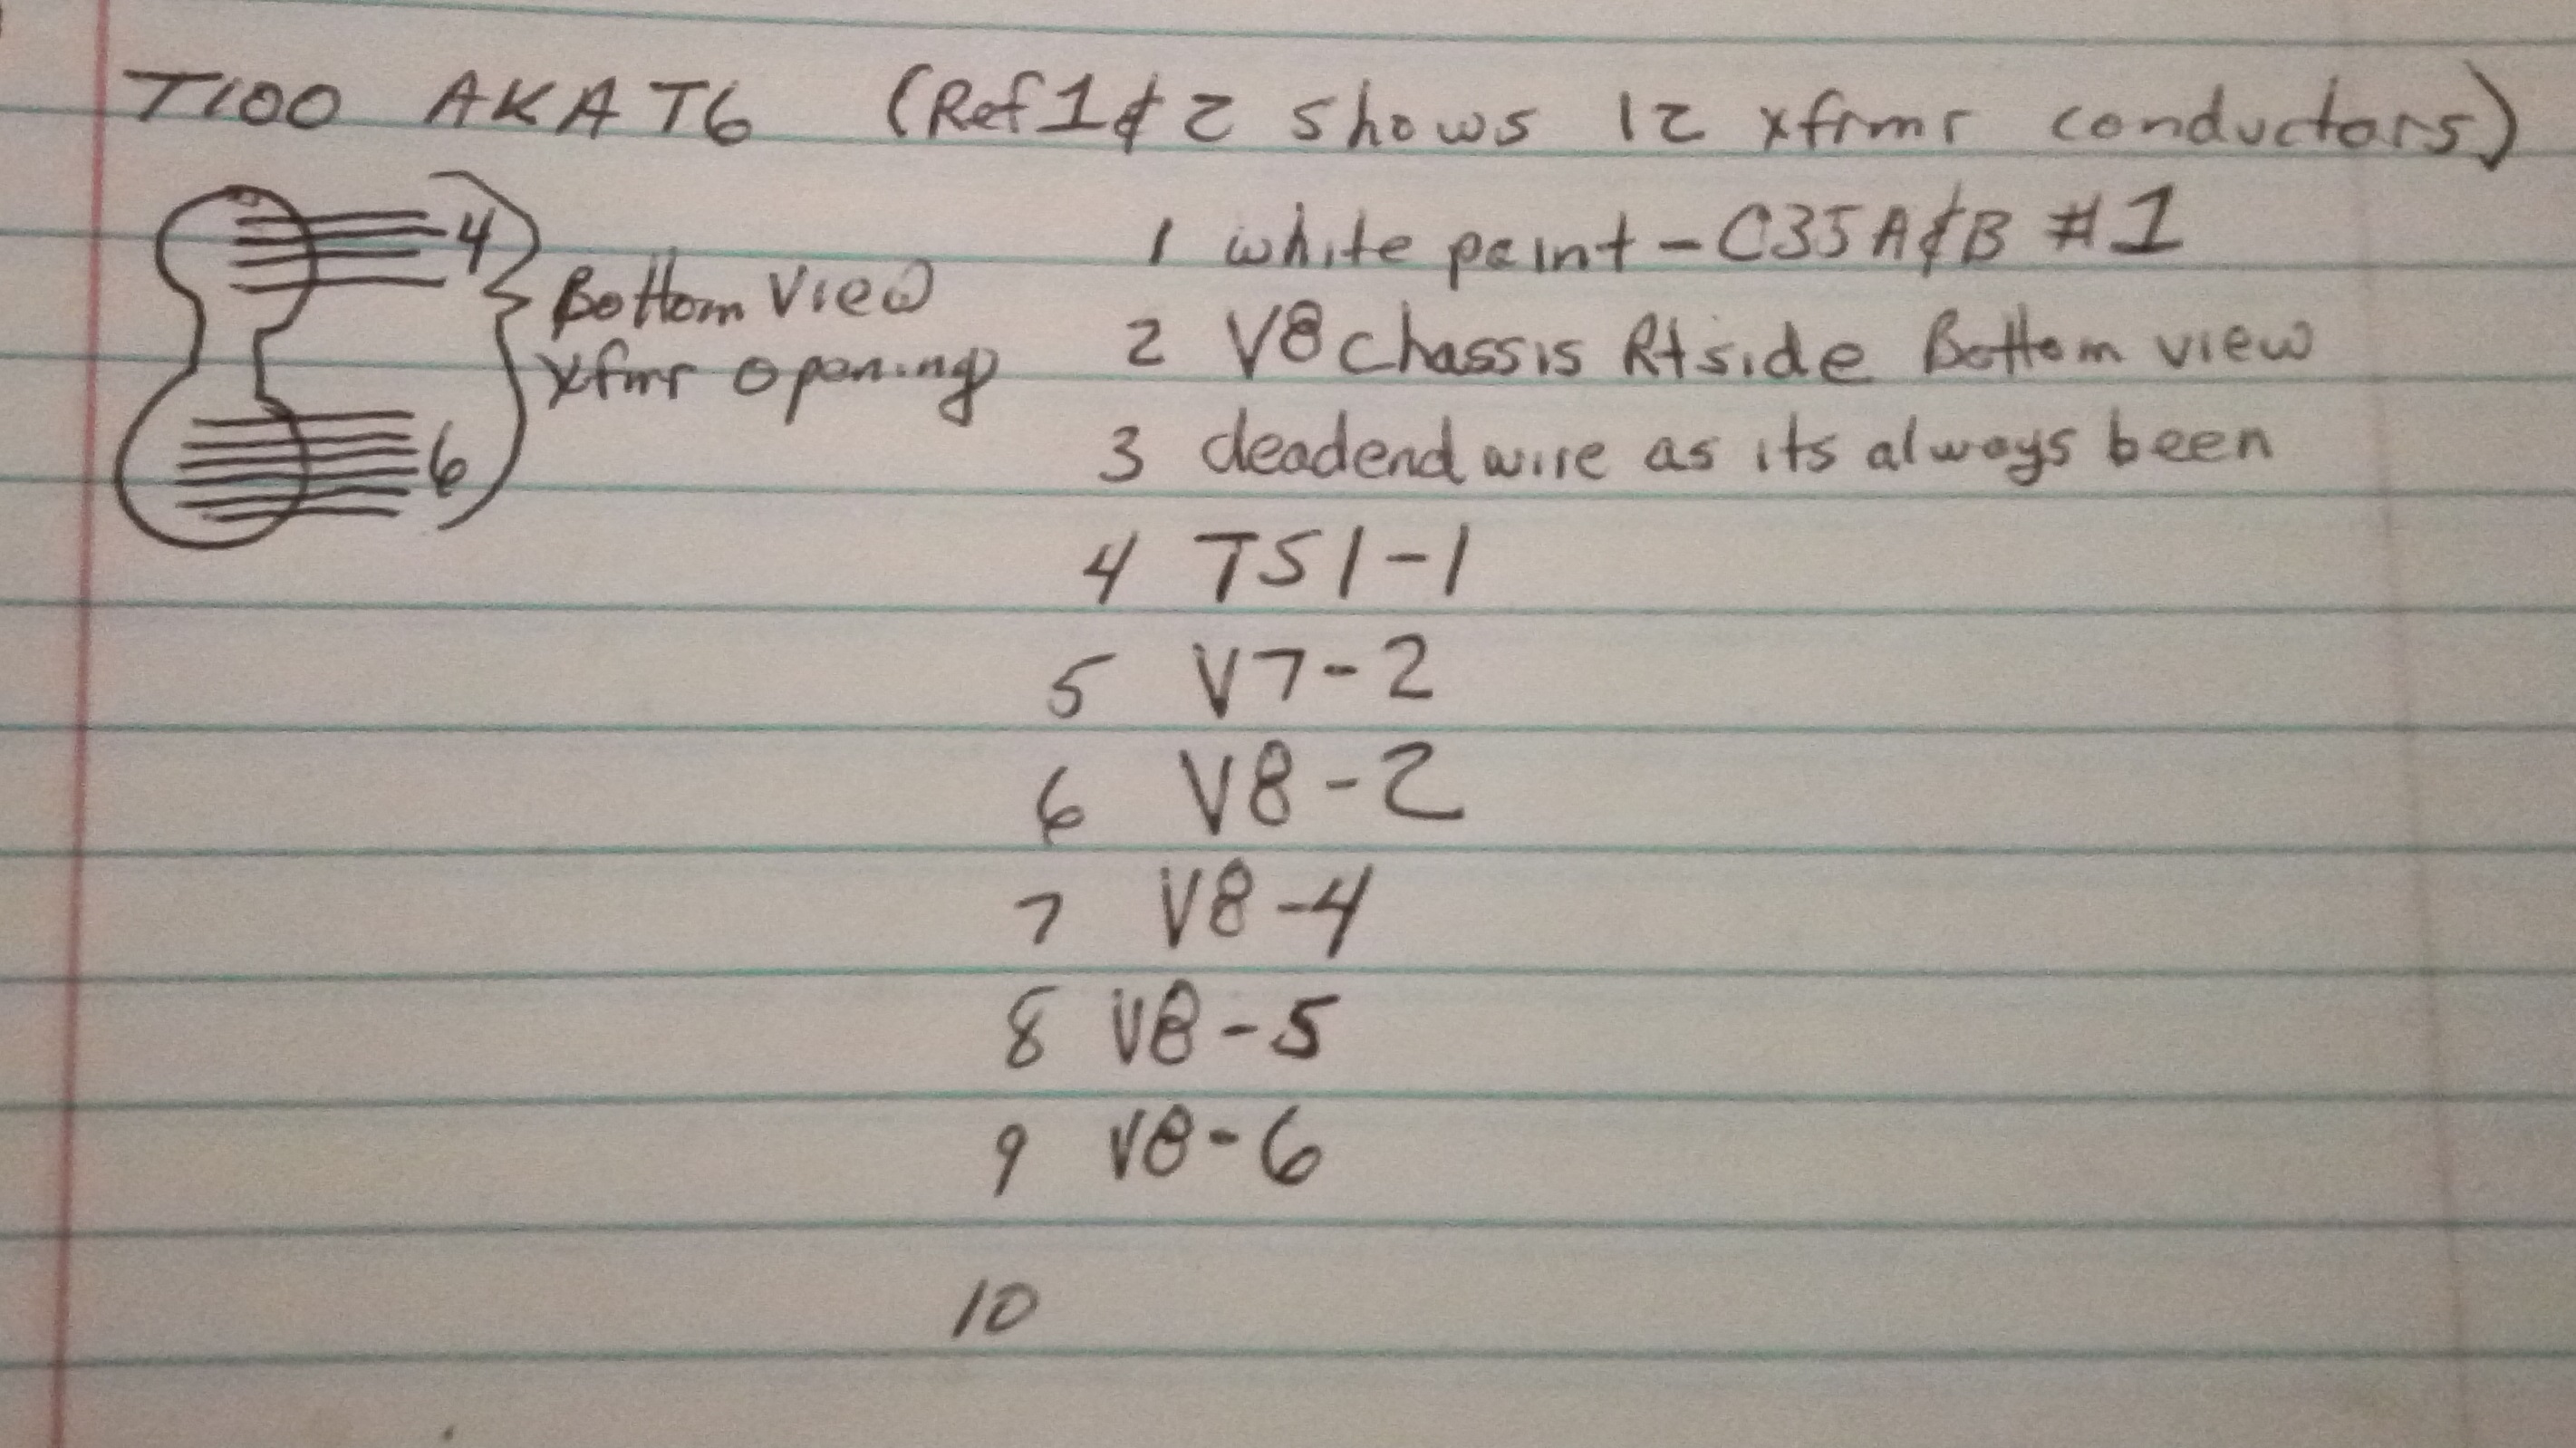 T100 AKA T6 (Ref 1 & 2 shows 12 xfrmr conductors)
4
6
Bottom View
xfmr opening
1 white paint - C35 A&B #1
2 V8 chassis Rt side Bottom view
3 deadend wire as its always been
4 TS1-1
5 V7-2
6 V8-2
7 V8-4
8 V8-5
9 V8-6
10